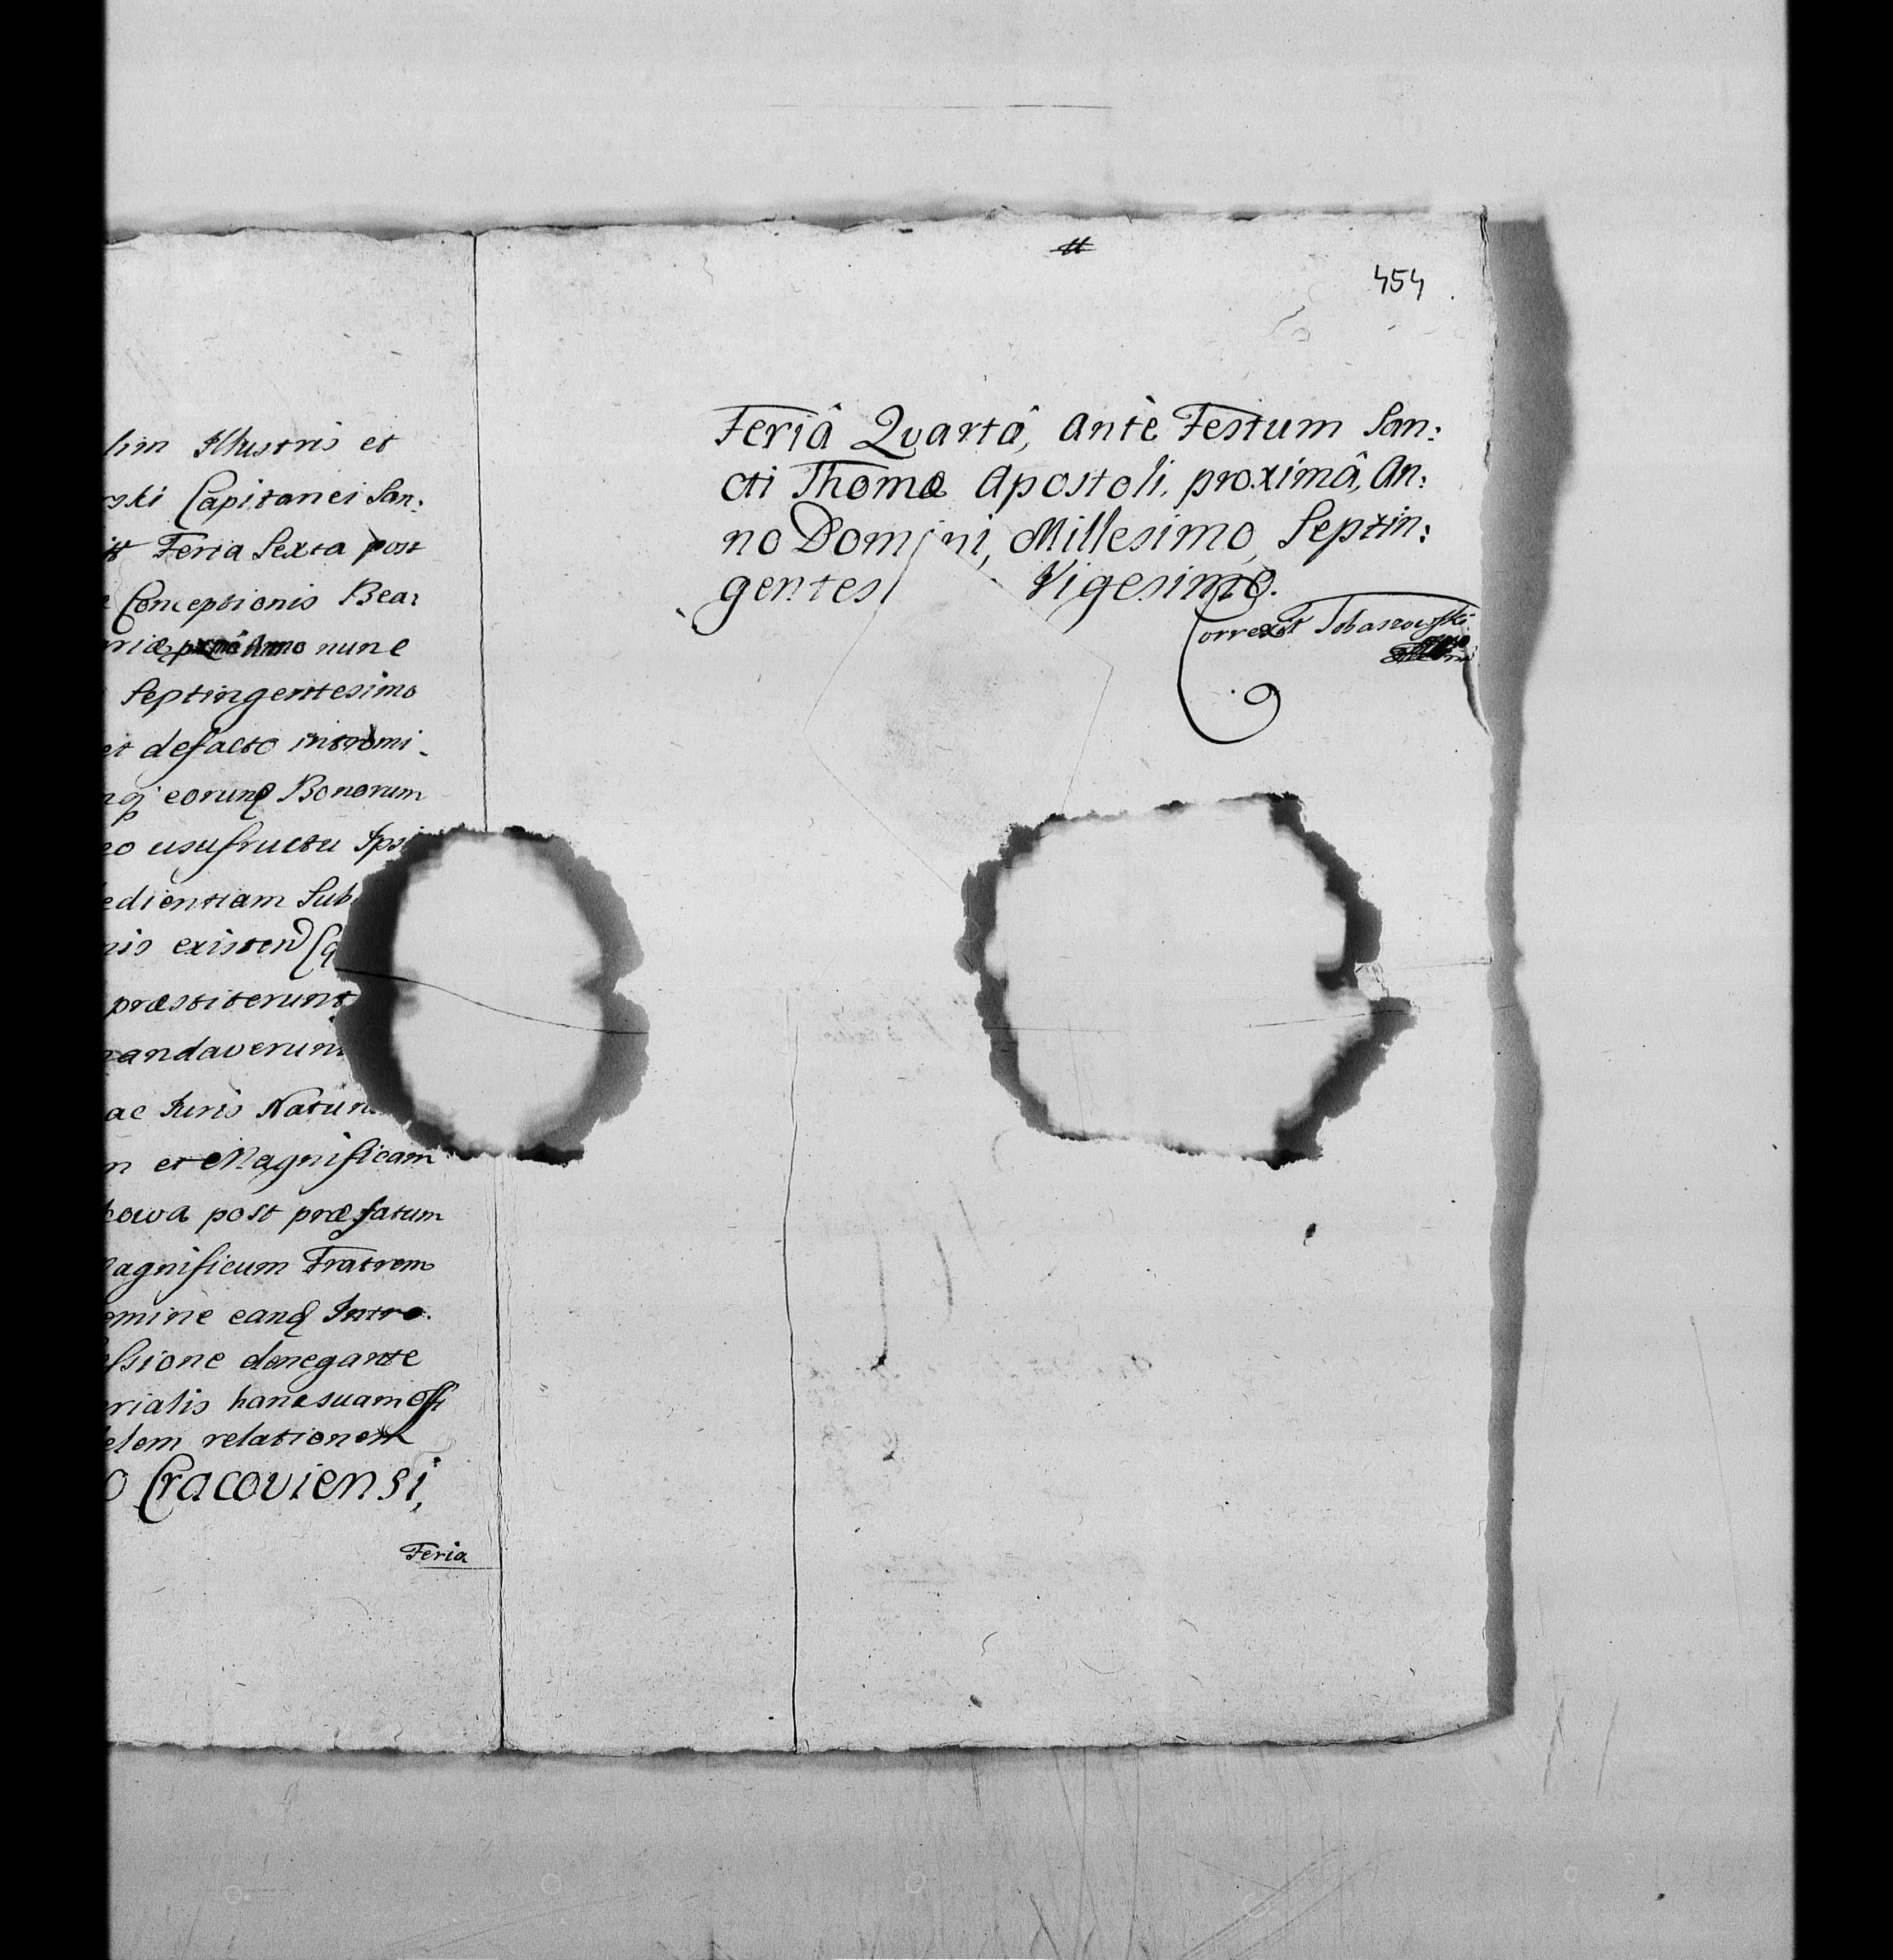 Illustris et
ski Capitanei San:
Feria Sexta post
Conceptionis Bea:
nunc
Septingentesimo
et defacto intromi-
eorunq Bonorum
usufructu Ips
edientiam Sub
existen
præstiterunt
mandaverunt
ac Iuris Natur
et Magnificam
kowa post præfatum
Magnificum Fratrem
omine eanq Intro-
essione denegante
rialis hanc suam offi
delem relationem
o Cracoviensi,
Feria
454
Feriâ Quartâ, Antè Festum San:
cti Thomæ Apostoli, proximâ, An:
no Domini, Millesimo, Septin:
gentesi Vigesimo.
Correxit